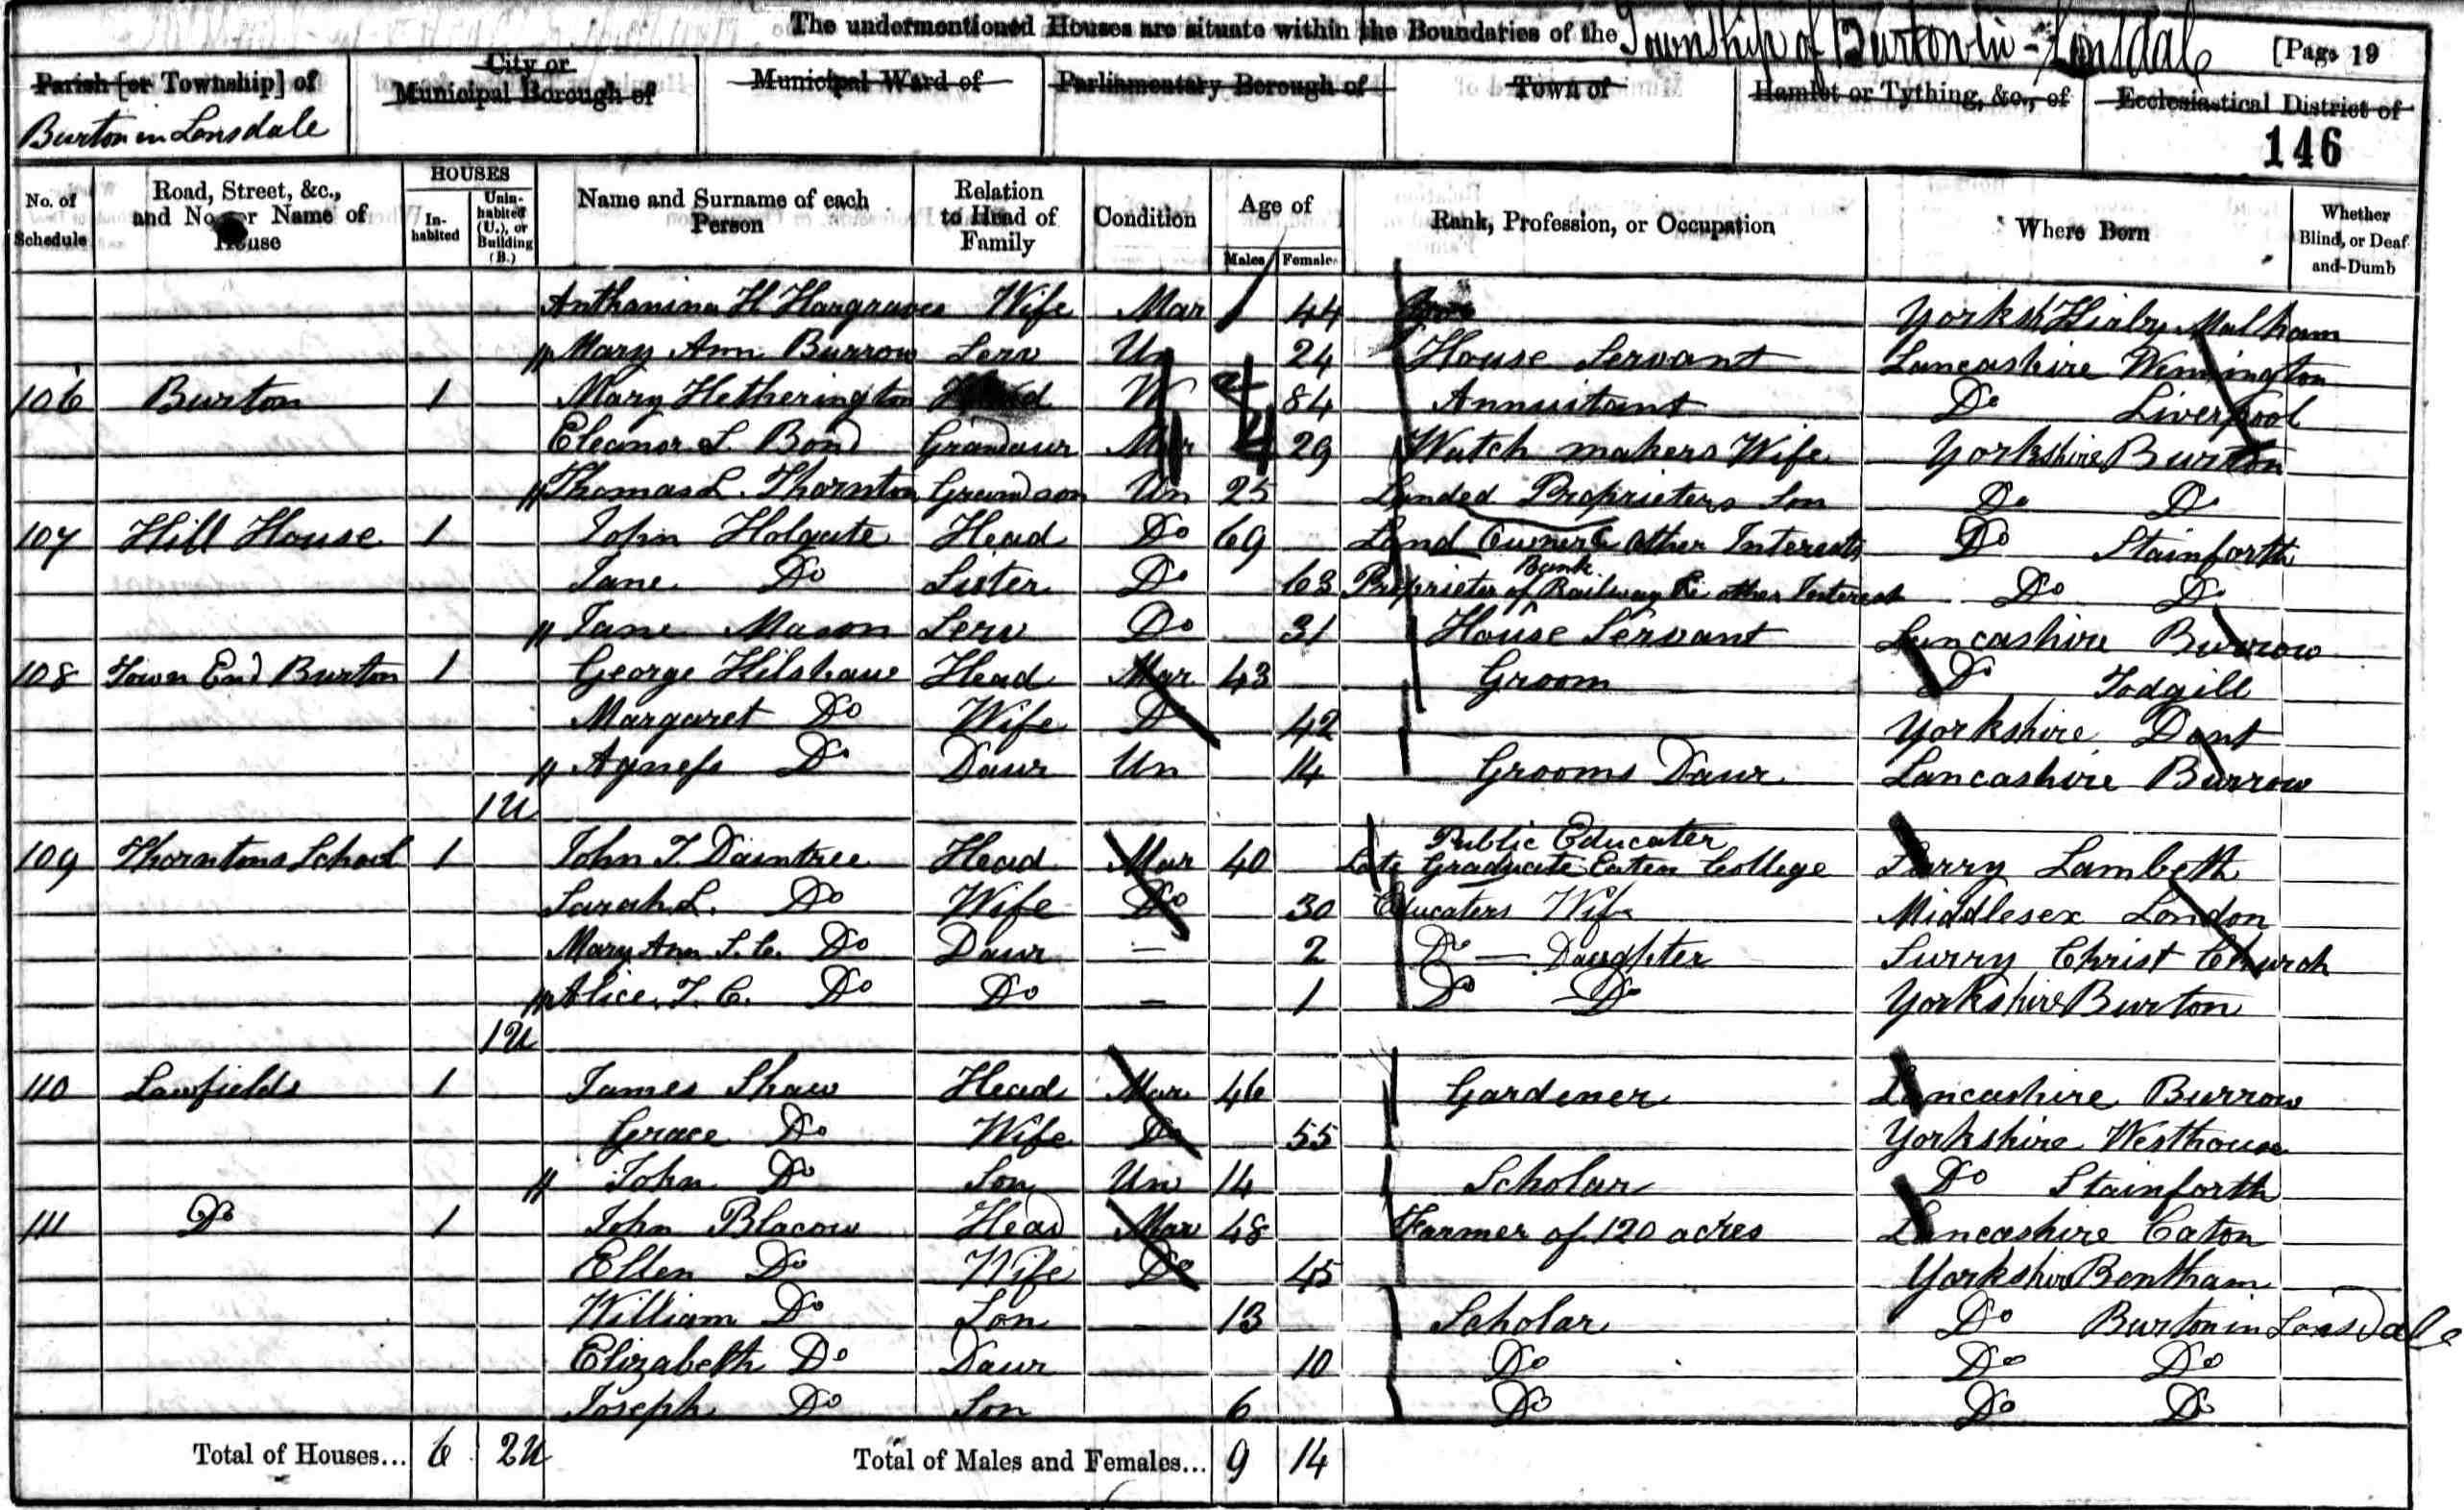 The undermentioned Houses are situate within the Boundaries of the Township of Burton in Lonsdale [Page 19
Parish [or Township] of
Burton in Lonsdale
City or Municipal Borough of
Municipal Ward of
Parliamentary Borough of
Town of
Hamlet or Tything, &c., of
Ecclesiastical District of
146
No. of Schedule
Road, Street, &c., and No. or Name of House
HOUSES
In-habited
Unin-habited (U.), or Building (B.)
Name and Surname of each Person
Relation to Head of Family
Condition
Age of
Males
Females
Rank, Profession, or Occupation
Where Born
Whether Blind, or Deaf-and-Dumb
Anthanina H Hargraves Wife Mar 44 Yorksh Kirby Malham
Mary Ann Burrow Serv Un 24 House Servant Lancashire Wennington
106 Burton 1 Mary Hetherington Head W 84 Annuitant Do Liverpool
Eleanor L. Bond Grandaur Mar 29 Watch makers Wife Yorkshire Burton
Thomas L. Thornton Grandson Un 25 Landed Proprieters Son Do Do
107 Hill House 1 John Holgate Head Do 69 Land Owner & Other Interests Do Stainforth
Jane Do Sister Do 63 Proprieter of Railway Bank & other Interest Do Do
Jane Mason Serv Do 31 House Servant Lancashire Burrow
108 Town End Burton 1 George Hilshaw Head Mar 43 Groom Do Todgill
Margaret Do Wife Do 42 Yorkshire Dent
Agness Do Daur Un 14 Grooms Daur Lancashire Burrow
1U
109 Thorntons School 1 John T. Daintree Head Mar 40 Public Educater Late Graduate Eaten College Surry Lambeth
Sarah L. Do Wife Do 30 Educaters Wife Middlesex London
Mary Ann S. C. Do Daur — 2 Do — Daughter Surry Christ Church
Alice. T. C. Do Do — 1 Do Do Yorkshire Burton
1U
110 Lawfields 1 James Shaw Head Mar 46 Gardener Lancashire Burrow
Grace Do Wife Do 55 Yorkshire Westhouse
John Do Son Un 14 Scholar Do Stainforth
111 Do 1 John Blacow Head Mar 48 Farmer of 120 acres Lancashire Caton
Ellen Do Wife Do 45 Yorkshire Bentham
William Do Son — 13 Scholar Do Burton in Lonsdale
Elizabeth Do Daur 10 Do Do Do
Joseph Do Son 6 Do Do Do
Total of Houses... 6 2U Total of Males and Females... 9 14